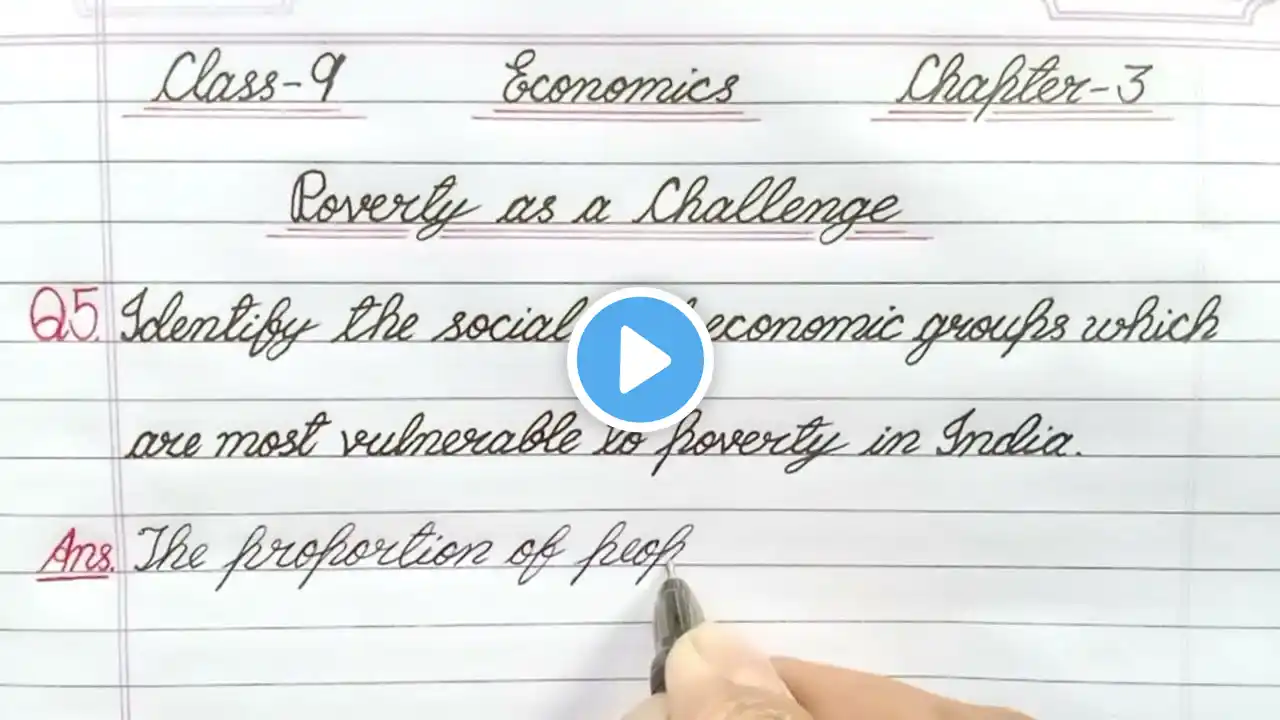 Class-9 Economics Chapter-3
Poverty as a Challenge
Q5. Identify the social economic groups which
are most vulnerable to poverty in India.
Ans. The proportion of peop